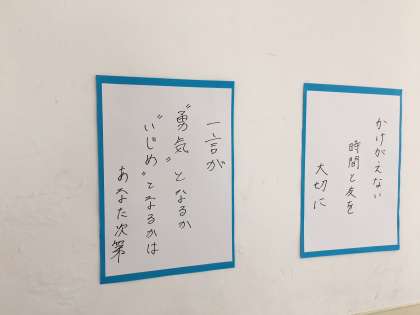 一言が
〝勇気〟となるか
〝いじめ〟となるかは
あなた次第
かけがえない
時間と友を
大切に